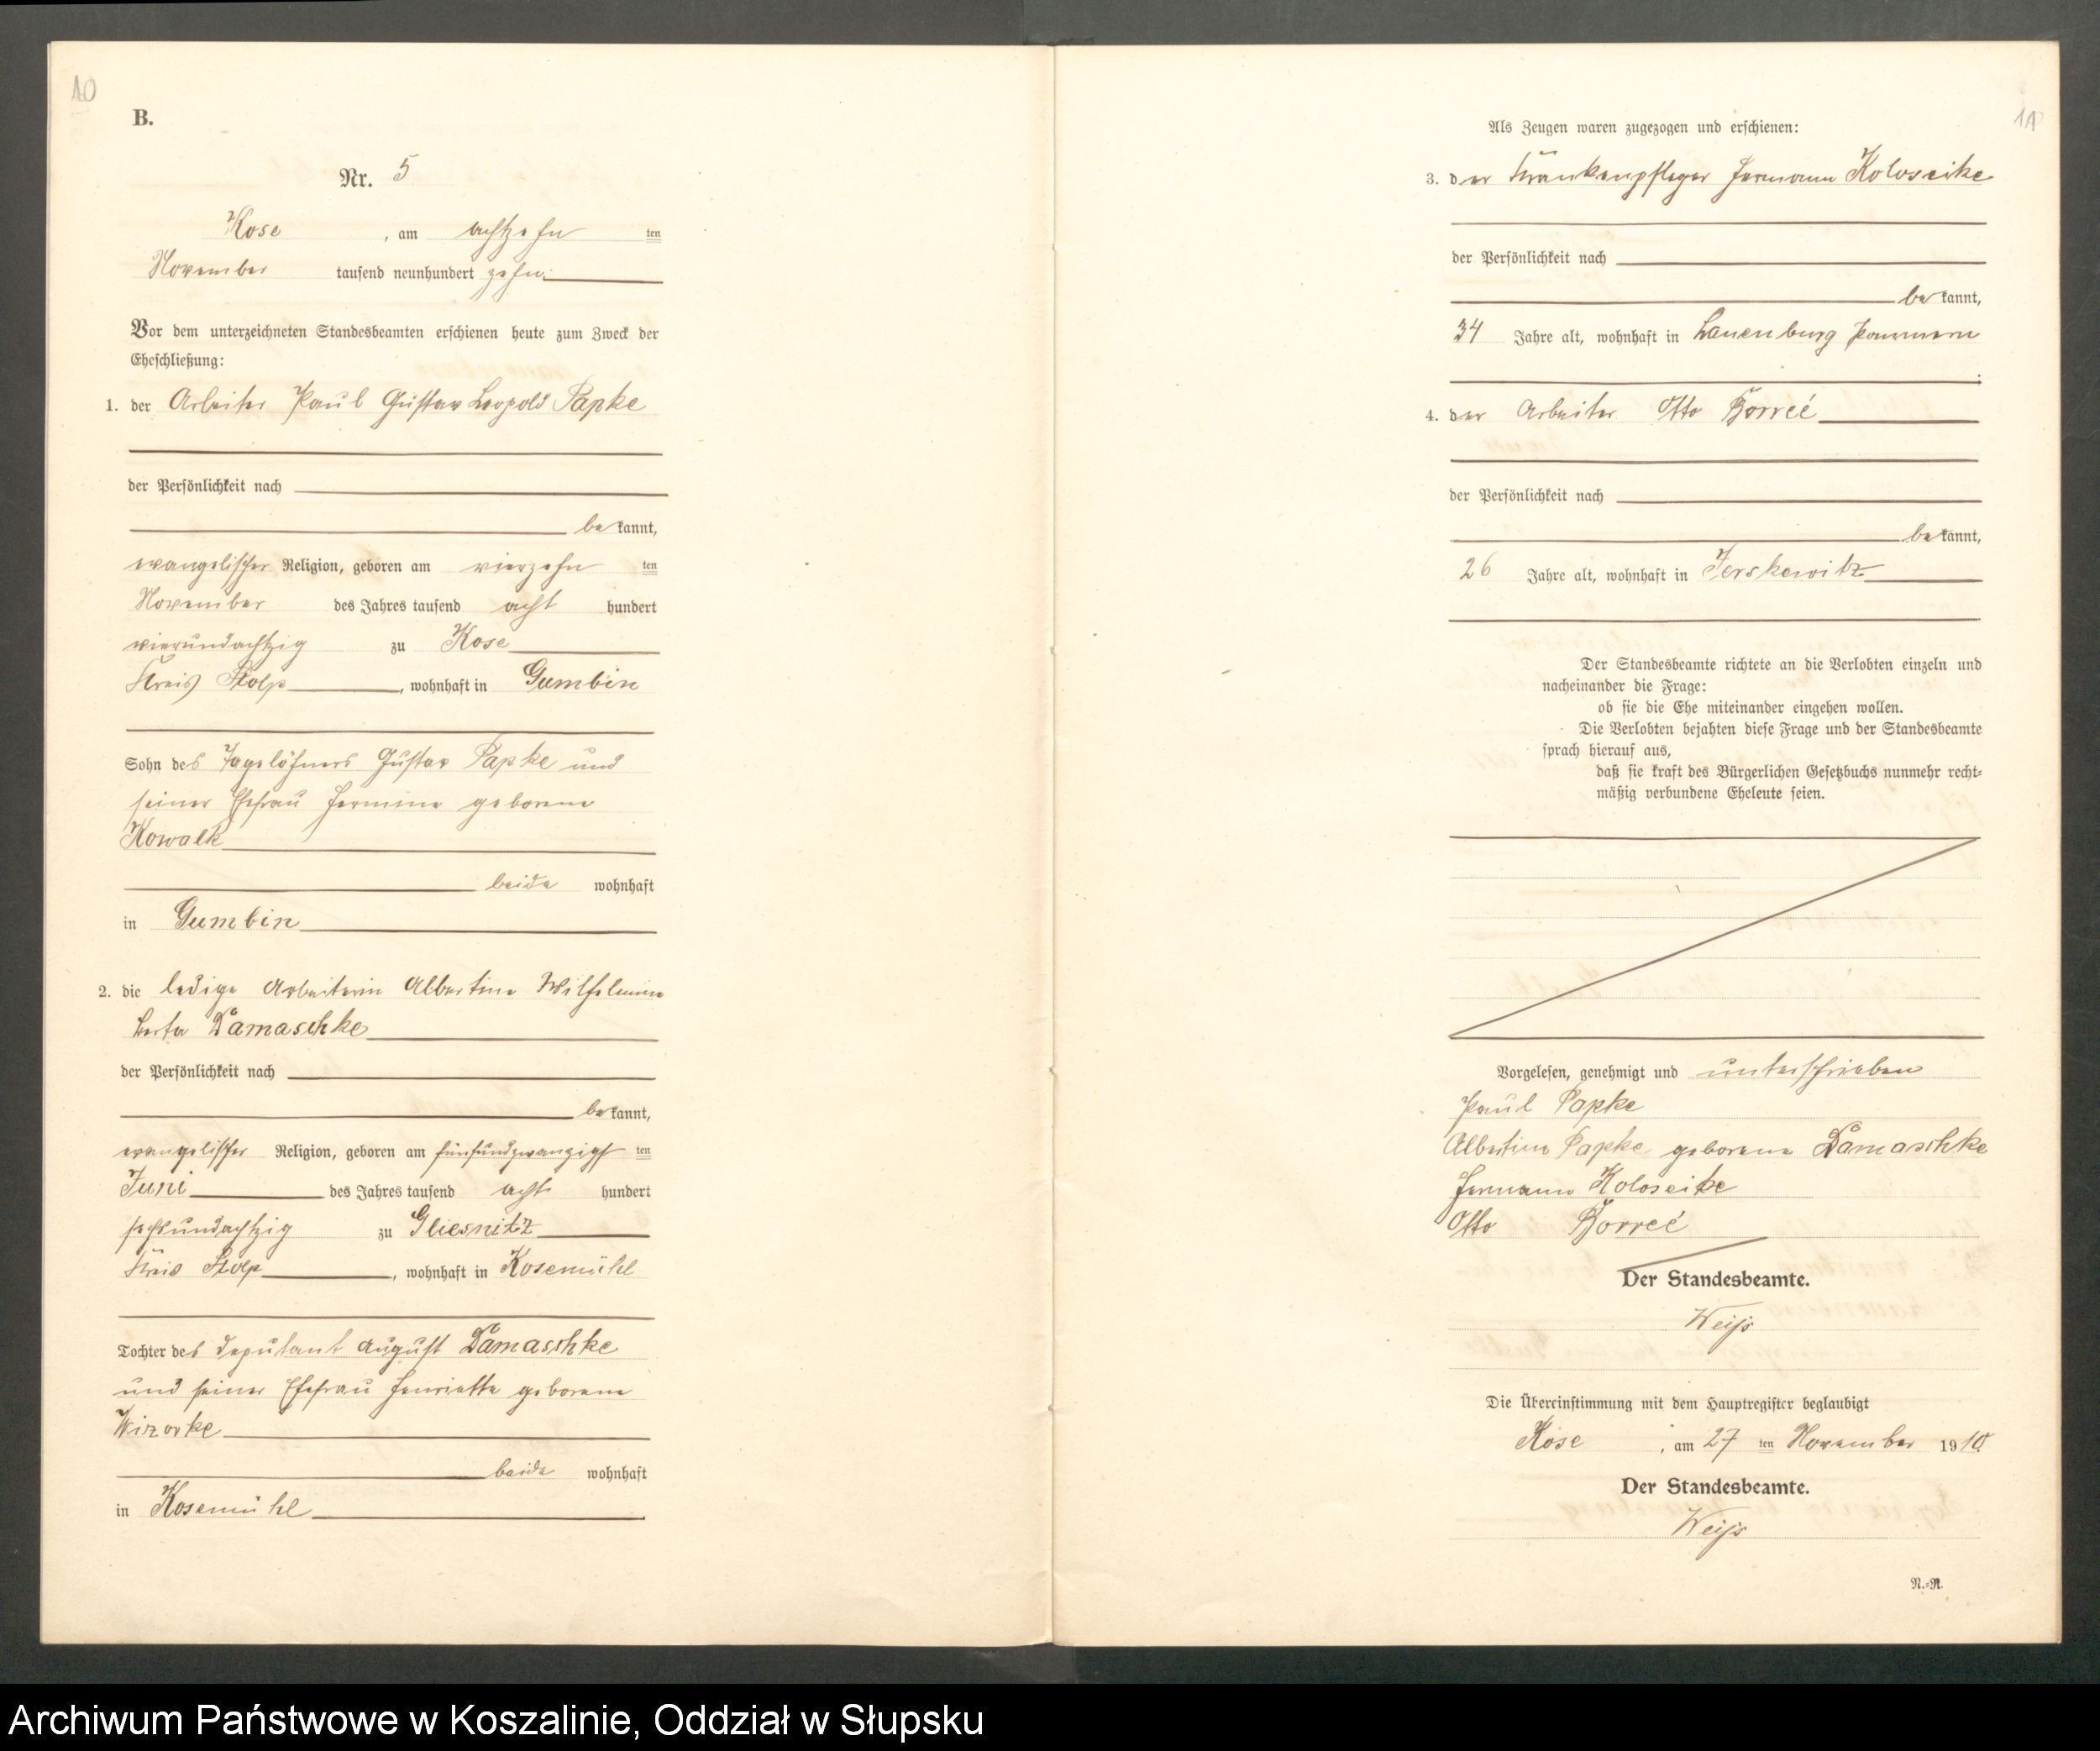 10
B.
Nr. 5
Kose, am achtzehn ten
November tausend neunhundert zehn.
Vor dem unterzeichneten Standesbeamten erschienen heute zum Zweck der
Eheschließung:
1. der Arbeiter Paul Gustav Leopold Papke
der Persönlichkeit nach
bekannt,
evangelischer Religion, geboren am vierzehn ten
November des Jahres tausend acht hundert
vierundachtzig zu Kose
Kreis Stolp, wohnhaft in Gumbin
Sohn des Tagelöhners Gustav Papke und
seiner Ehefrau Hermine geborene
Kowalk
beide wohnhaft
in Gumbin
2. die ledige Arbeiterin Albertine Wilhelmine
Berta Damaschke
der Persönlichkeit nach
bekannt,
evangelischer Religion, geboren am fünfundzwanzigs ten
Juni des Jahres tausend acht hundert
sechsundachtzig zu Gliesnitz
Kreis Stolp, wohnhaft in Kosemühl
Tochter des Deputant August Damaschke
und seiner Ehefrau Henriette geborene
beide wohnhaft
in Kosemühl
11
Als Zeugen waren zugezogen und erschienen:
3. der Krankenpfleger Hermann Koloseike
der Persönlichkeit nach
bekannt,
34 Jahre alt, wohnhaft in Lauenburg Pommern
4. der Arbeiter Otto Borreé
der Persönlichkeit nach
bekannt,
26 Jahre alt, wohnhaft in Jerskewitz
Der Standesbeamte richtete an die Verlobten einzeln und
nacheinander die Frage:
ob sie die Ehe miteinander eingehen wollen.
Die Verlobten bejahten diese Frage und der Standesbeamte
sprach hierauf aus,
daß sie kraft des Bürgerlichen Gesetzbuchs nunmehr recht-
mäßig verbundene Eheleute seien.
Vorgelesen, genehmigt und unterschrieben
Paul Papke
Albertine Papke geborene Damaschke
Hermann Koloseike
Otto Borreé
Der Standesbeamte.
Weiß
Die Übereinstimmung mit dem Hauptregister beglaubigt
Kose, am 27 ten November 1910
Der Standesbeamte.
Weiß
N.-R.
Archiwum Państwowe w Koszalinie, Oddział w Słupsku